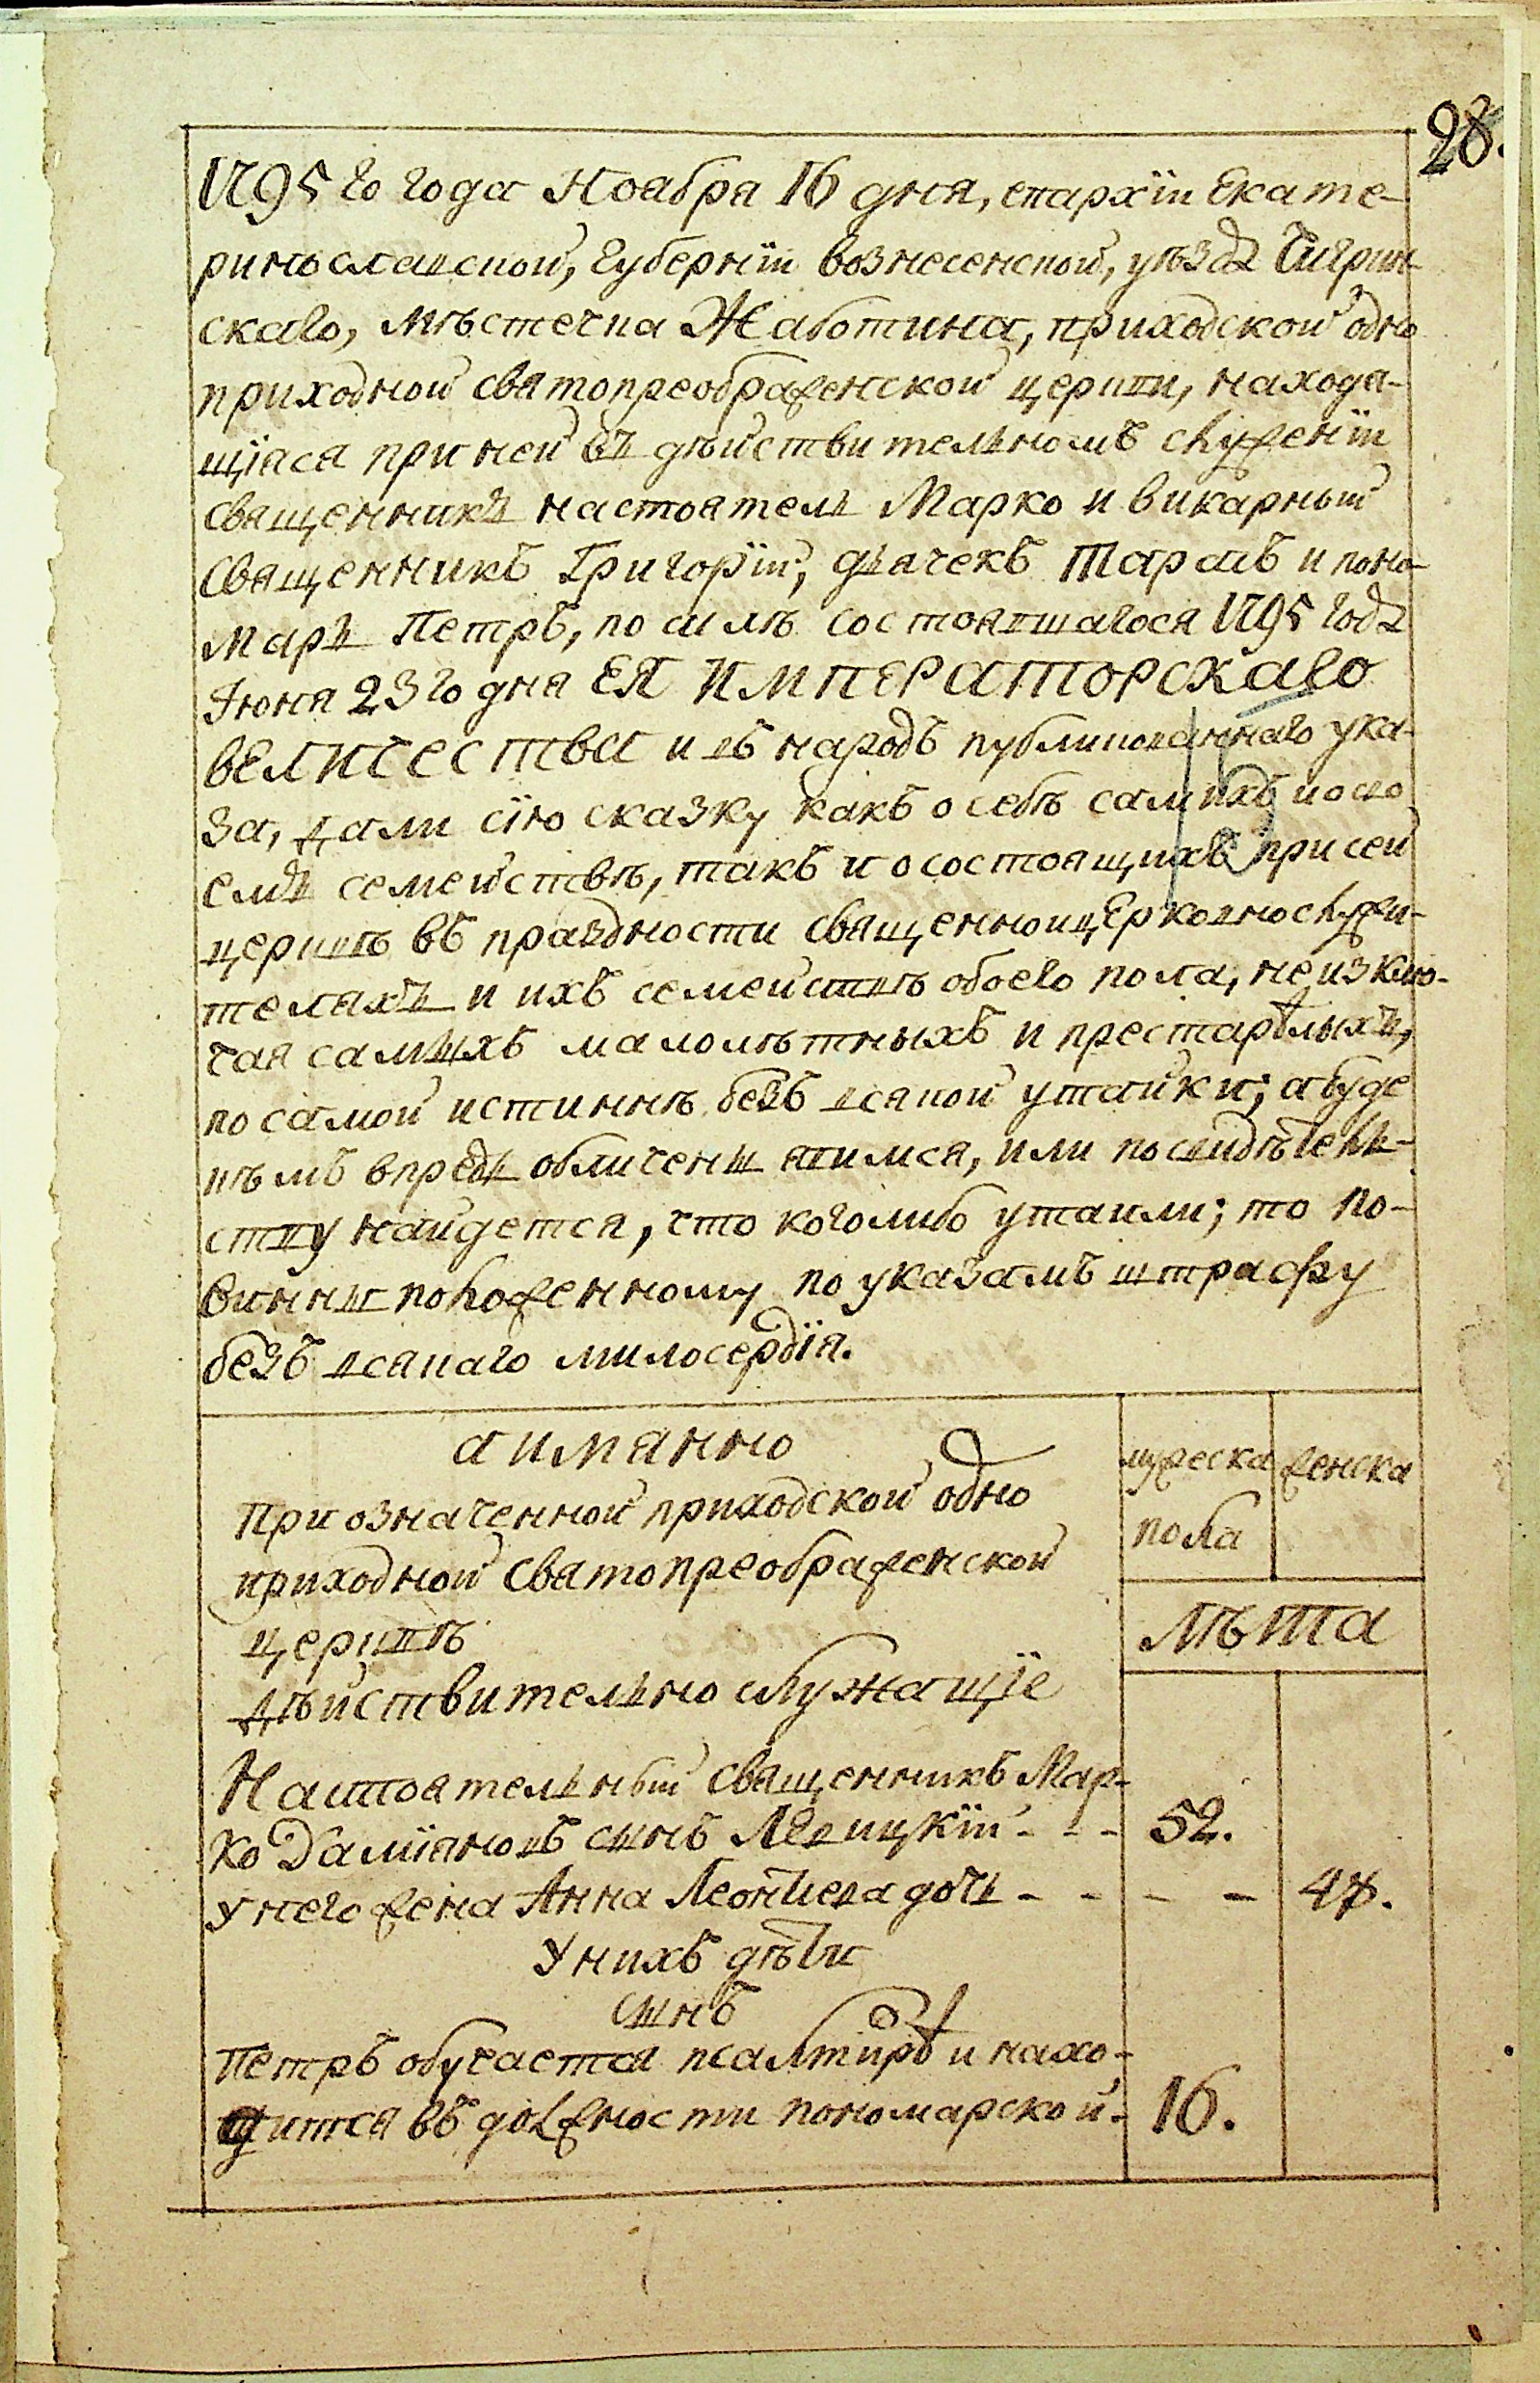 28.
1795 го года Ноабря 16 дня, епархїи Екате-
ринославской, губернїи вознесенской, уѣзда Чигрин-
скаго, мѣстечка Жаботина, приходской одно
приходной святопреображенской церкви, находя-
щїяся при ней въ дѣйствительномъ служенїи
священникъ настоятель Марко и викарный
священникъ Григорїй, дьячекъ Тарасъ и поно-
марь Петръ, по силѣ состоявшагося 1795 года
Iюня 23 го дня ЕЯ ИМПЕРАТОРСКАГО
ВЕЛИЧЕСТВА и въ народъ публикованнаго ука-
за, дали сїю сказку какъ о себѣ самихъ и о сво
емъ семействѣ, такъ и о состоящихъ при сей
церквѣ въ праздности священноицерковнослужи-
теляхъ и ихъ семействѣ обоего пола, неизклю-
чая самыхъ малолѣтныхъ и престарѣлыхъ,
по самой истиннѣ безъ всякой утайки; а буде
въ чемъ впредь обличены явимся, или по свидѣтель-
ству найдется, что коголибо утаили; то по-
винны положенному по указамъ штрафу
безъ всякаго милосердїя.
а имянно
мужеска женска
пола
При означенной приходской одно
приходной святопреображенской
церквѣ
лѣта
дѣйствительно служащїе
Настоятельный священникъ Мар-
ко Дамїяновъ сынъ Левицкїй - - - 52.
У него жена Анна Леонтиева дочь - - - - 47.
У нихъ дѣти
сынъ
Петръ обучается псалтирѣ и нахо-
дится въ должности пономарской. 16.